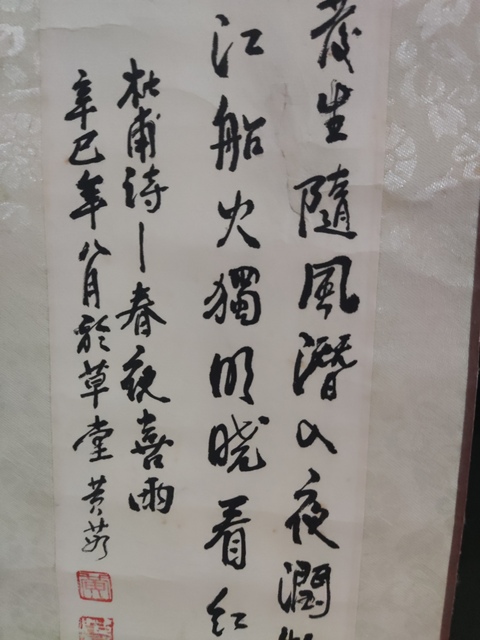 發生隨風潛入夜潤
江船火獨明曉看紅
杜甫詩—春夜喜雨
辛巳年八月於草堂